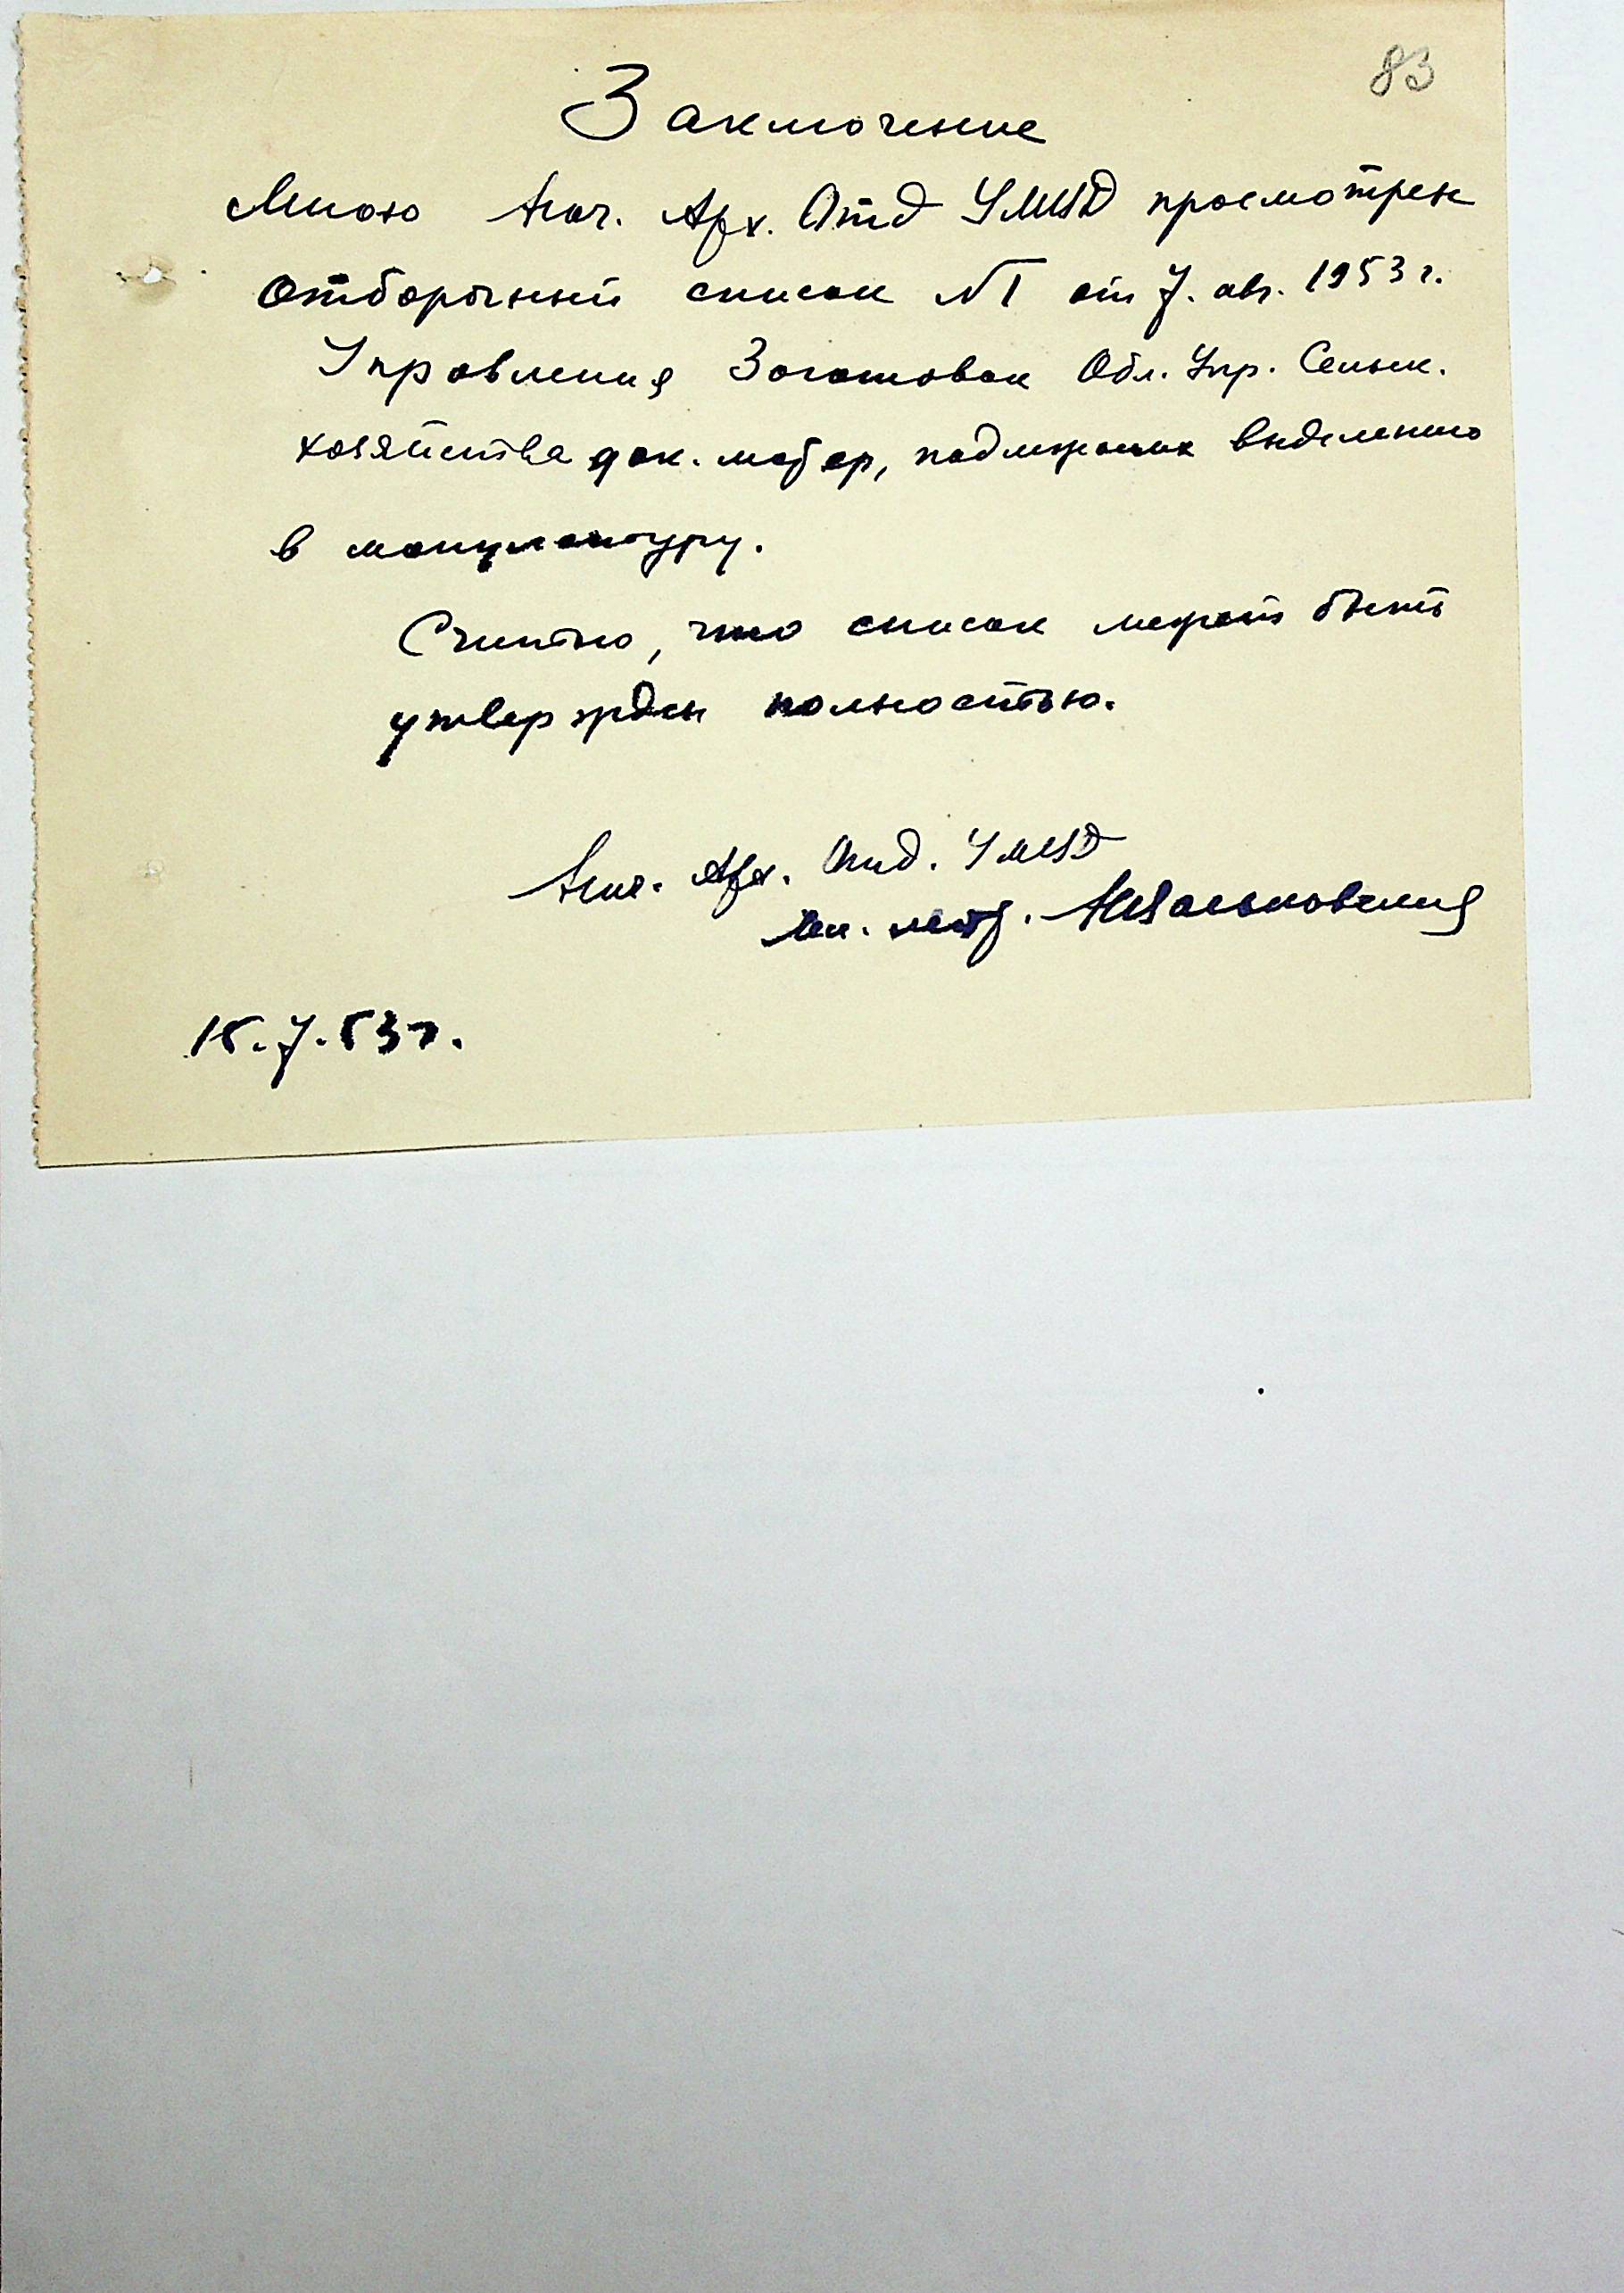 83
Заключение
Мною Нач. Арх. Отд УМВД просмотрен
Отборочный список №1 от 7. авг. 1953 г.
Управления Заготовок Обл. Упр. Сельск.
хозяйства док. матер, подлежащих выделению
в макулатуру.
Считаю, что список может быть
утвержден полностью.
Нач. Арх. Отд. УМВД
лейт.
15.7.53 г.